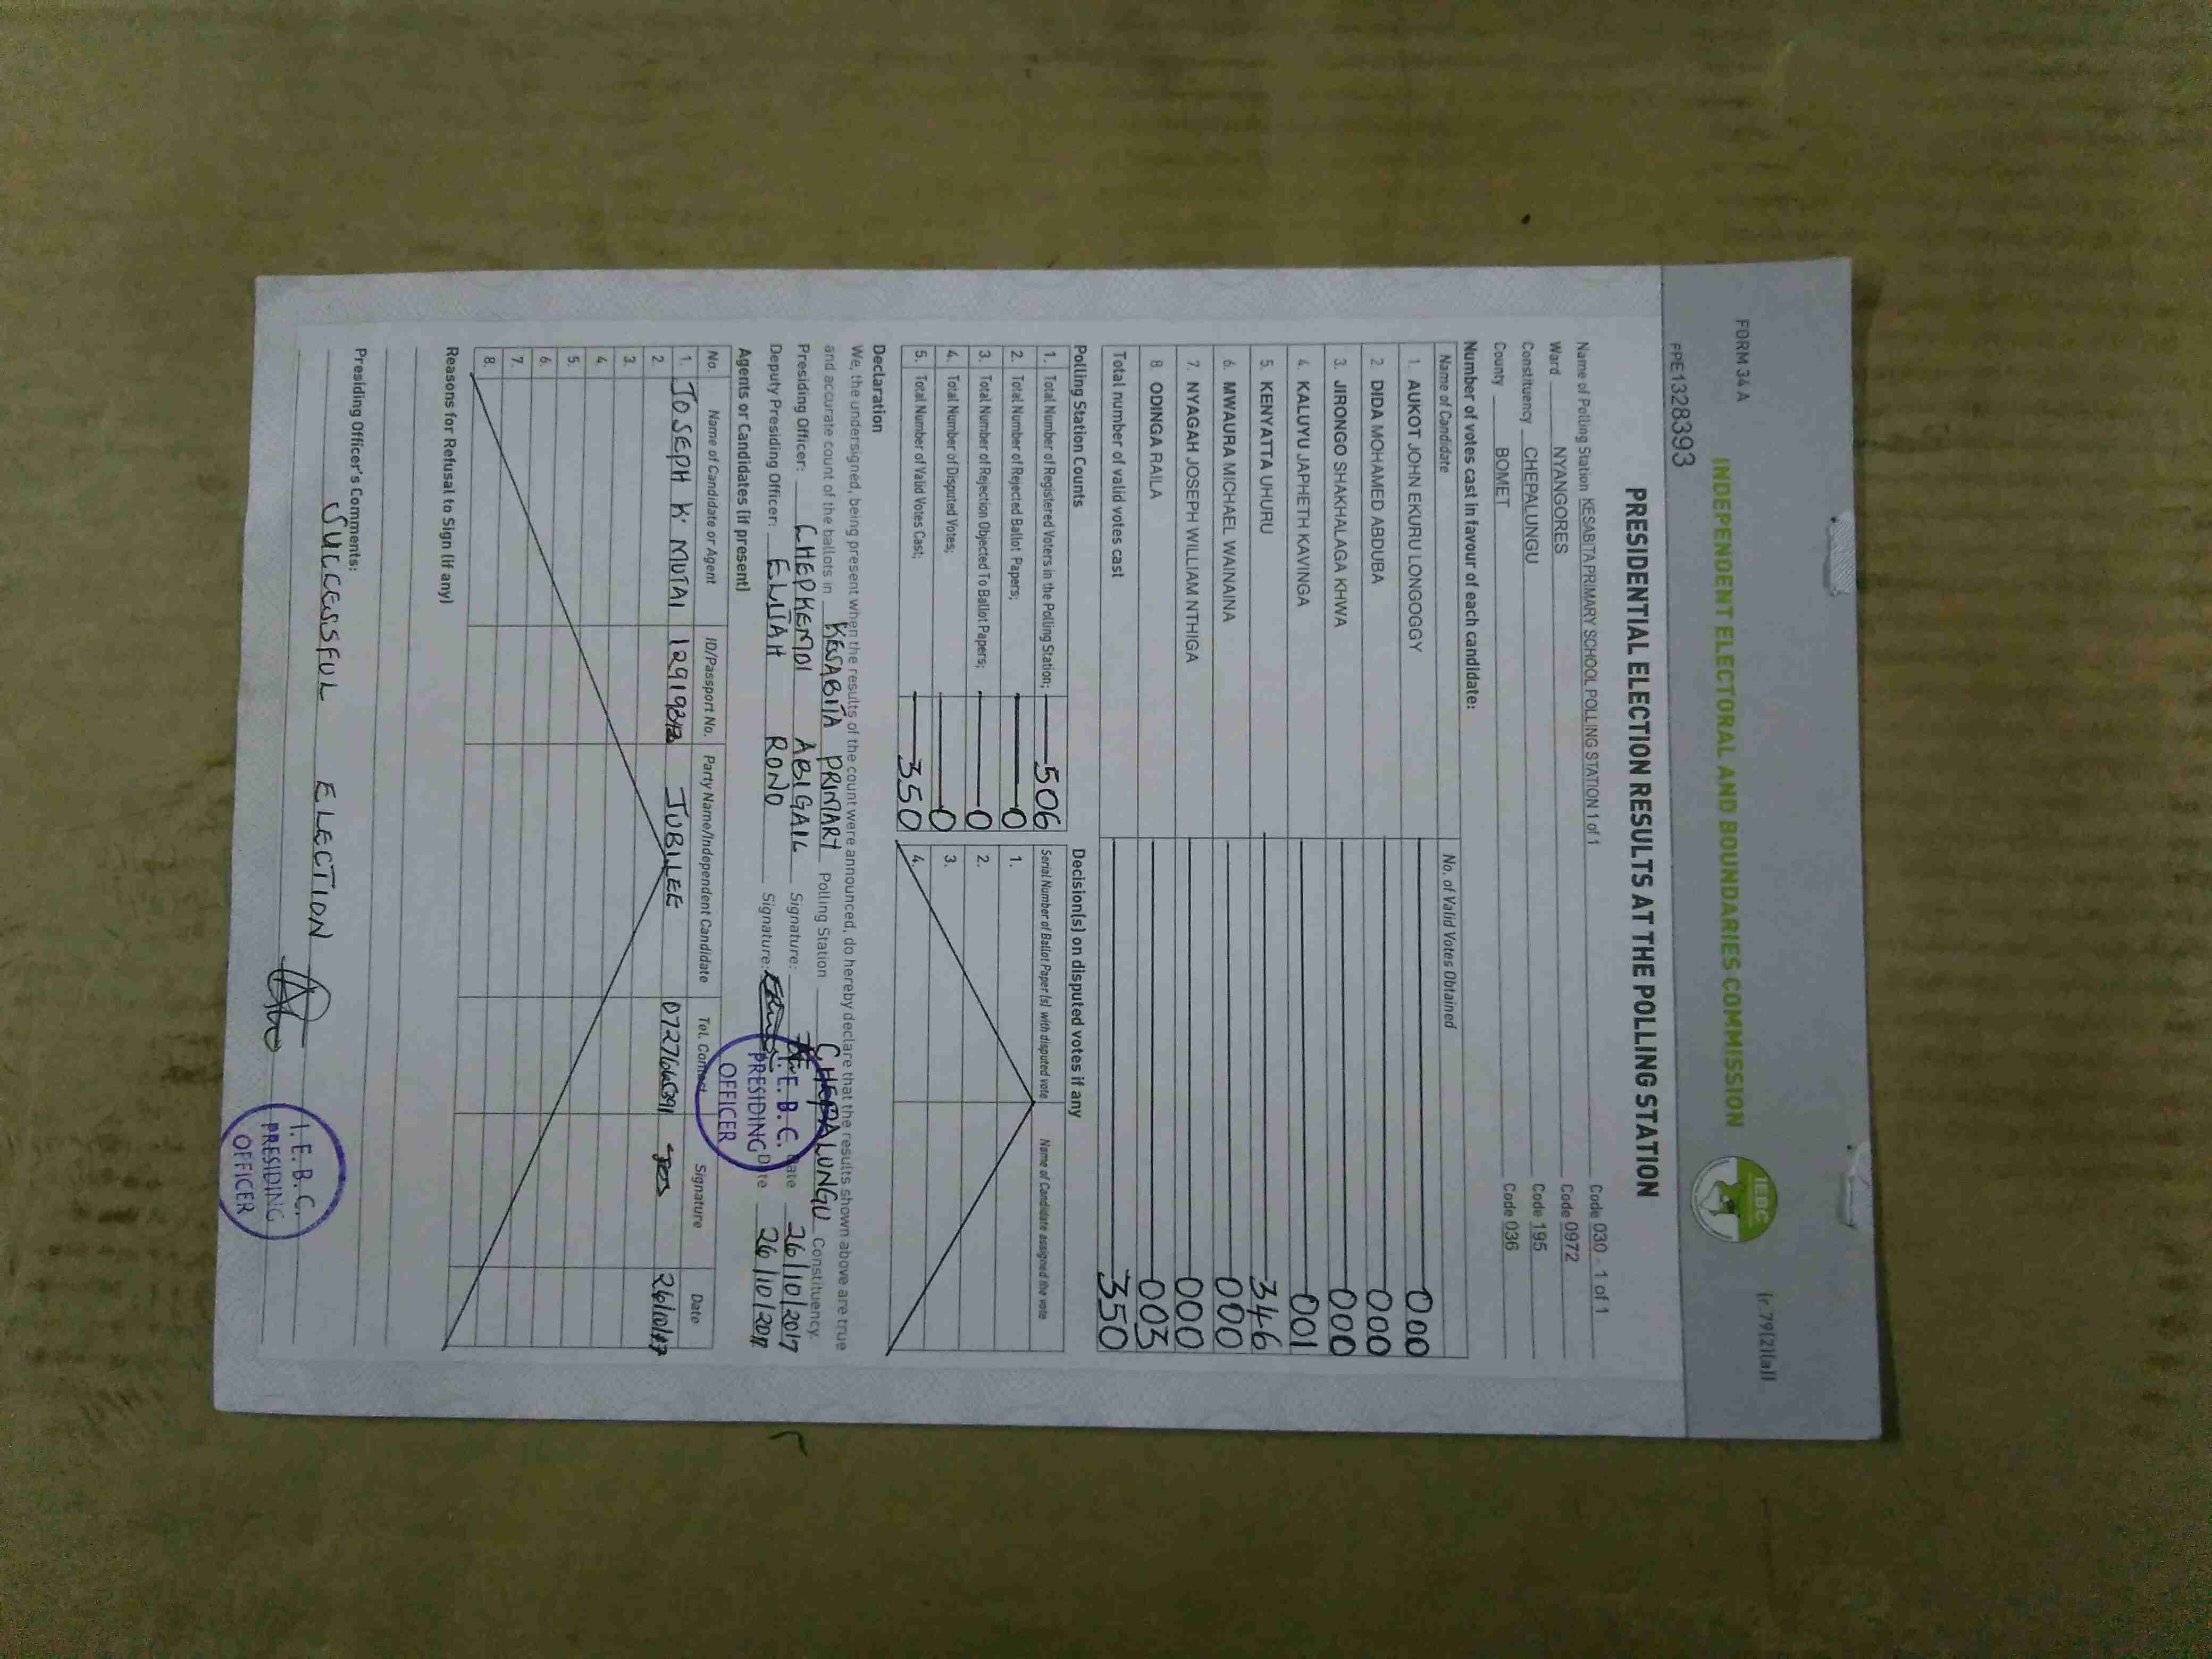 FORM 34 A
INDEPENDENT ELECTORAL AND BOUNDARIES COMMISSION
IEBC
(r.79(2)(a))
PPE1328393
PRESIDENTIAL ELECTION RESULTS AT THE POLLING STATION
Name of Polling Station KESABITA PRIMARY SCHOOL POLLING STATION 1 of 1 Code 030 - 1 of 1
Ward NYANGORES Code 0972
Constituency CHEPALUNGU Code 195
County BOMET Code 036
Number of votes cast in favour of each candidate:
Name of Candidate No. of Valid Votes Obtained
1. AUKOT JOHN EKURU LONGOGGY 000
2 DIDA MOHAMED ABDUBA 000
3. JIRONGO SHAKHALAGA KHWA 000
4. KALUYU JAPHETH KAVINGA 001
5. KENYATTA UHURU 346
6. MWAURA MICHAEL WAINAINA 000
7. NYAGAH JOSEPH WILLIAM NTHIGA 000
8 ODINGA RAILA 003
Total number of valid votes cast 350
Polling Station Counts Decision(s) on disputed votes if any
1. Total Number of Registered Voters in the Polling Station; 506 Serial Number of Ballot Paper (s) with disputed vote Name of Candidate assigned the vote
2. Total Number of Rejected Ballot Papers; 0 1.
3. Total Number of Rejection Objected To Ballot Papers; 0 2.
4. Total Number of Disputed Votes; 0 3.
5. Total Number of Valid Votes Cast; 350 4.
Declaration
We, the undersigned, being present when the results of the count were announced, do hereby declare that the results shown above are true
and accurate count of the ballots in KESABITA PRIMARY Polling Station CHEPALUNGU Constituency.
Presiding Officer: CHEPKEMOI ABIGAIL Signature: Date 26/10/2017
Deputy Presiding Officer: ELIJAH RONO Signature: Date 26/10/2017
I.E.B.C.
PRESIDING
OFFICER
Agents or Candidates (if present)
No. Name of Candidate or Agent ID/Passport No. Party Name/Independent Candidate Tel. Contact Signature Date
1. JOSEPH K. MUTAI JUBILEE 26/10/17
2.
3.
4.
5.
6.
7.
8.
Reasons for Refusal to Sign (if any)
Presiding Officer's Comments:
SUCCESSFUL ELECTION
I.E.B.C.
PRESIDING
OFFICER